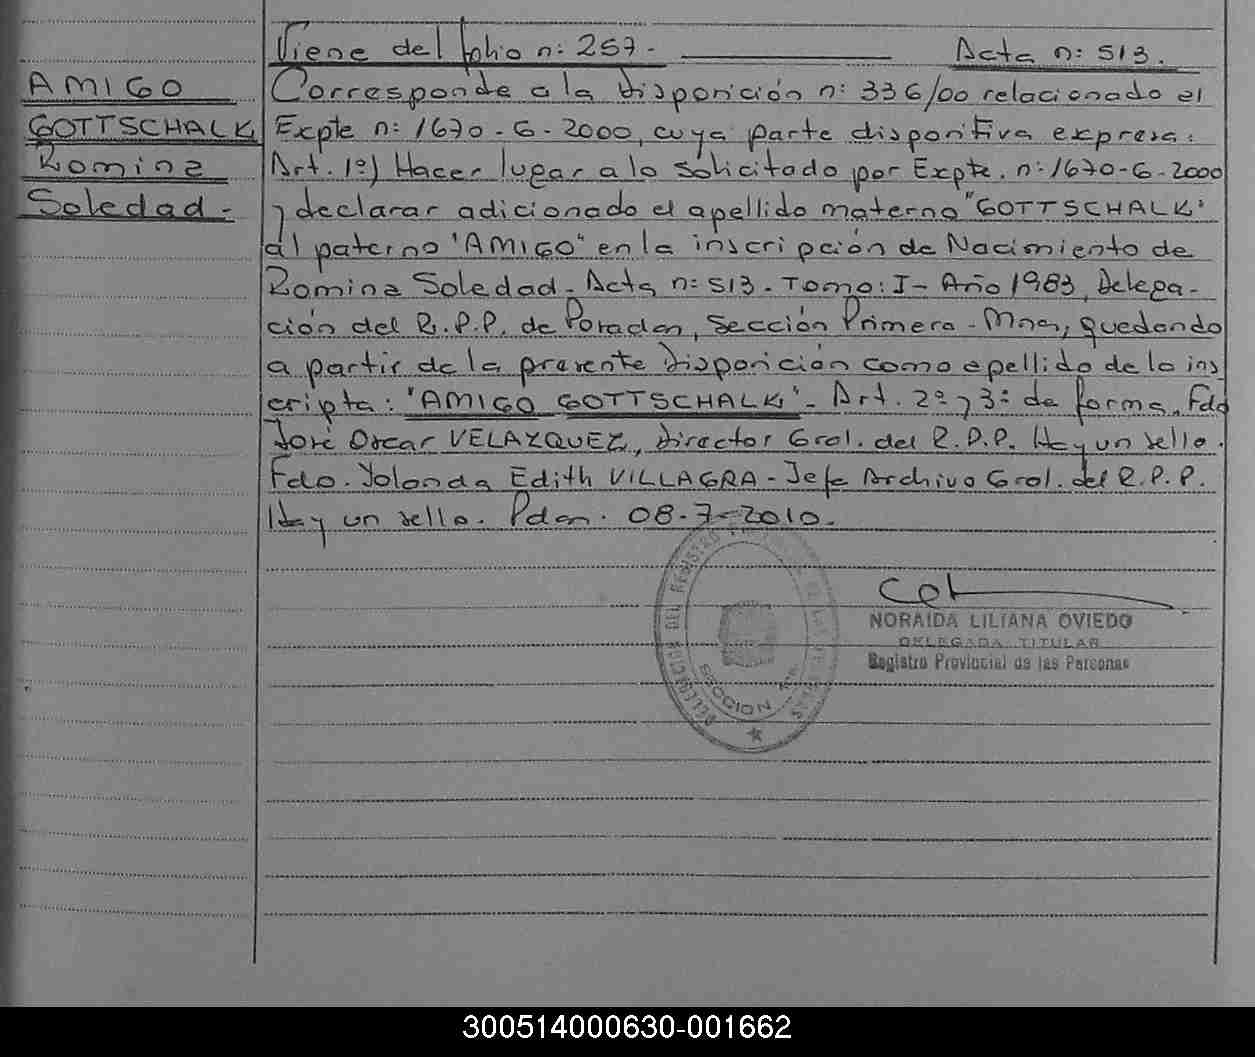 Viene del folio n: 257.- Acta n: 513.
AMIGO
GOTTSCHALK
Romina
Soledad.-
Corresponde a la Disposición n: 336/00 relacionado el
Expte n: 1670-6-2000, cuya parte dispositiva expresa:
Art. 1º) Hacer lugar a lo solicitado por Expte. n: 1670-6-2000
y declarar adicionado el apellido materno "GOTTSCHALK"
al paterno "AMIGO" en la inscripción de Nacimiento de
Romina Soledad. Acta n: 513. Tomo: I- Año 1983, Delega-
ción del R.P.P. de Posadas, Sección Primera - Mnes, quedando
a partir de la presente Disposición como apellido de la ins
cripta: "AMIGO GOTTSCHALK"- Art. 2º y 3º de forma. Fdo
José Oscar VELAZQUEZ, Director Gral. del R.P.P. Hay un sello.
Fdo. Yolanda Edith VILLAGRA - Jefe Archivo Gral. del R.P.P.
Hay un sello. Pdas. 08-7-2010.
DELEGACION DEL REGISTRO DE LAS PERSONAS
SECCION 1ra
NORAIDA LILIANA OVIEDO
DELEGADA TITULAR
Registro Provincial de las Personas
300514000630-001662